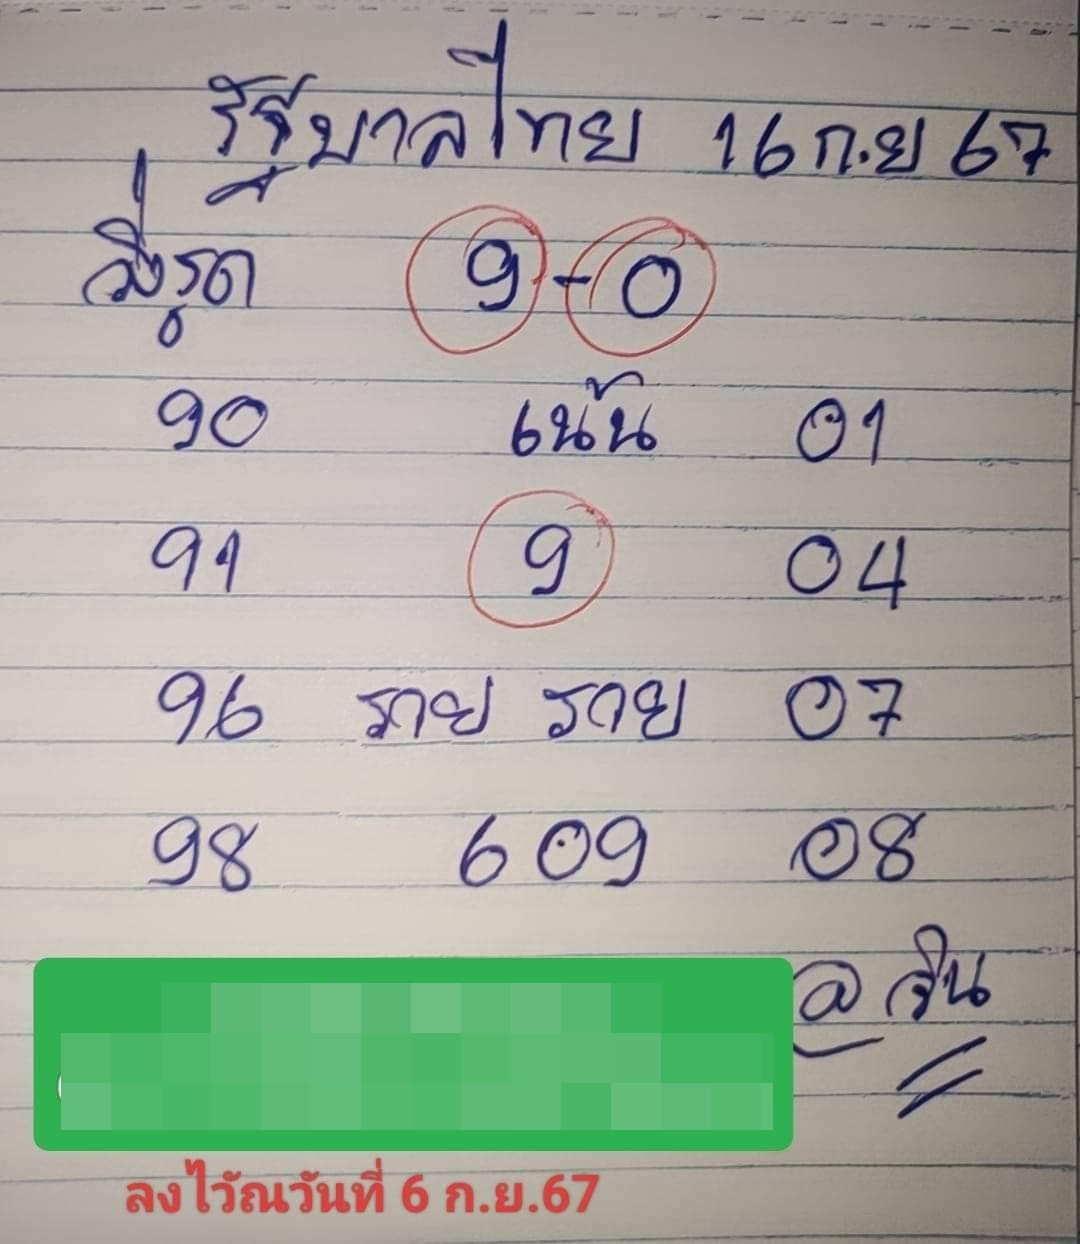 รัฐบาลไทย 16 ก.ย 67
วิ่งรูด 9-0
90 เน้น 01
91 9 04
96 รวย รวย 07
98 609 08
@ จิน
ลงไว้ณวันที่ 6 ก.ย.67